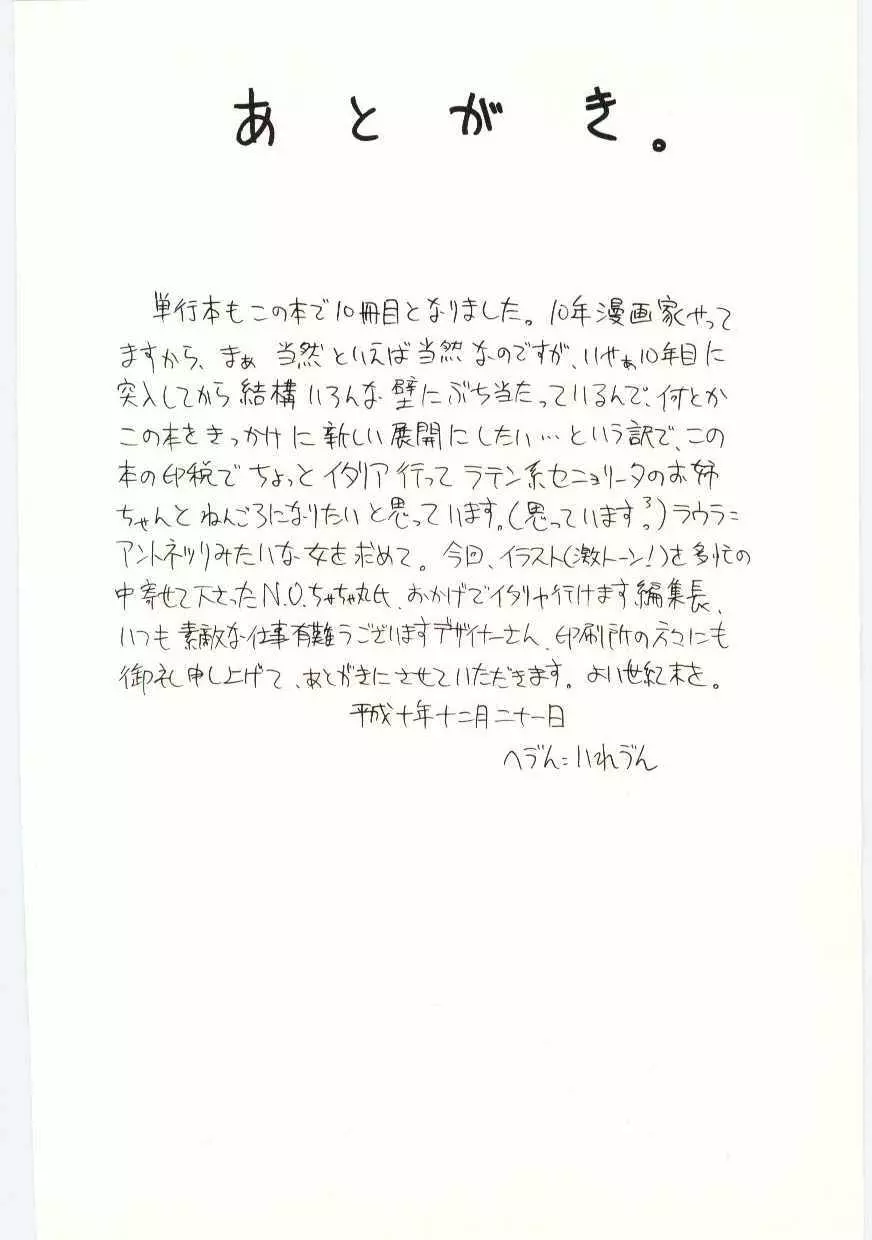 あとがき。
単行本もこの本で10冊目となりました。10年漫画家やって
ますから、まぁ当然といえば当然なのですが、いやぁ10年目に
突入してから結構いろんな壁にぶち当たっているんで、何とか
この本をきっかけに新しい展開にしたい…という訳で、この
本の印税でちょっとイタリア行ってラテン系セニョリータのお姉
ちゃんとねんごろになりたいと思っています。(思っています?)ラウラ=
アントネッリみたいな女を求めて。今回、イラスト(激トーン!)を多忙の
中寄せて下さったN.O.ちゃちゃ丸氏、おかげでイタリヤ行けます編集長、
いつも素敵な仕事有難うございますデザイナーさん、印刷所の方々にも
御礼申し上げて、あとがきにさせていただきます。よい世紀末を。
平成十年十二月二十一日
へづん=いれづん